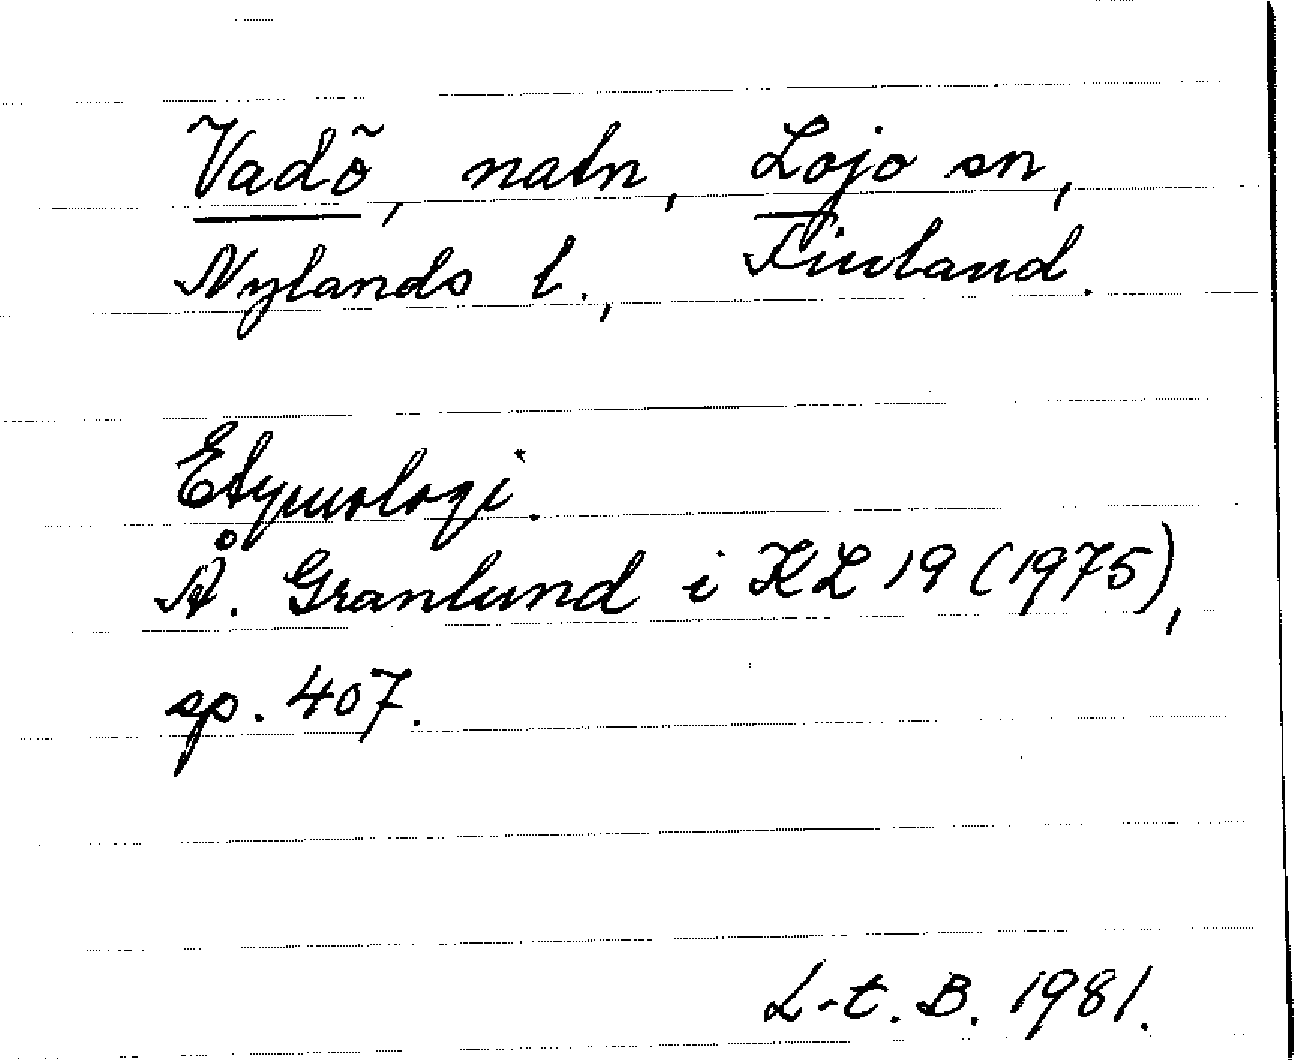 Vadö, natn, Lojo sn,
Nylands l., Finland.
Etymologi.
Å. Granlund i KL 19 (1975),
sp. 407.
L-t. B. 1981.